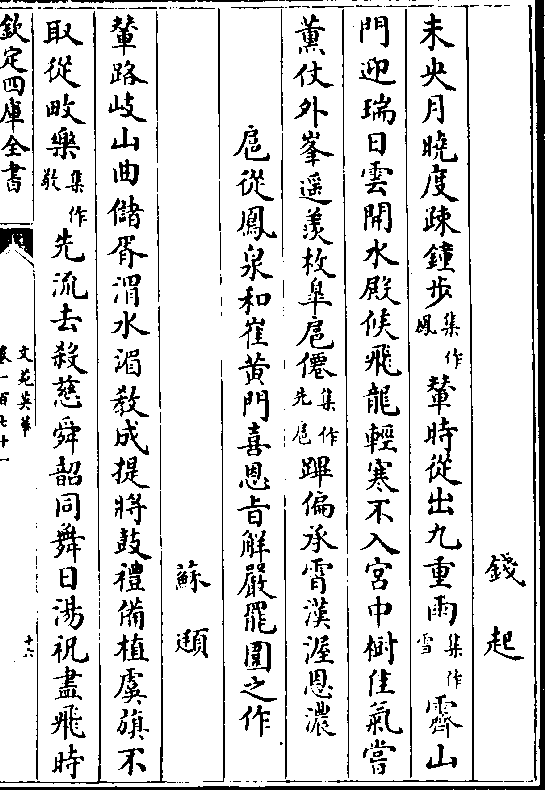 錢起
未央月曉度疎鐘步集作鳳輦時從出九重雨集作雪霽山
門迎瑞日雲開水殿候飛龍輕寒不入宮中樹佳氣嘗
薫仗外峯遥羡枚臯扈僊集作先扈蹕偏承霄漢渥恩濃
扈從鳳泉和崔黄門喜恩旨解嚴罷圍之作
蘇頲
輦路岐山曲儲胥渭水湄教成提將鼓禮備植虞旗不
取從畋樂集作先流去殺慈舜韶同舞日湯祝盡飛時
欽定四庫全書
文苑英華
卷一百七十一
十六